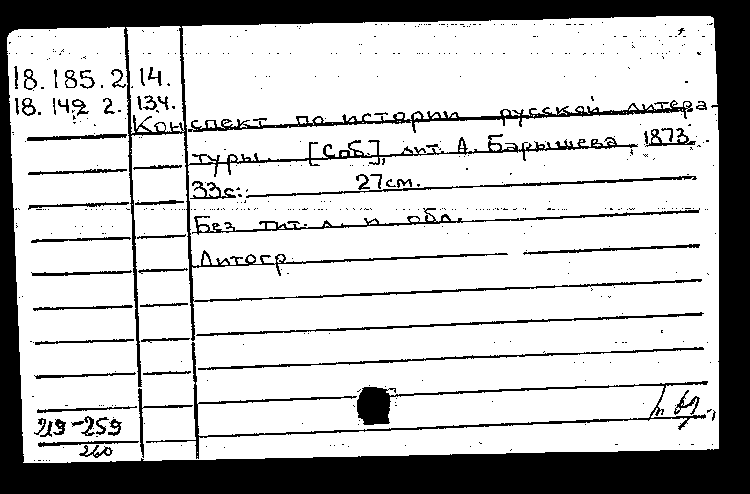 18.185.2 14.
18.149 2. 134.
Конспект по истории русской литера-
туры. [Спб.], лит. А. Барышева, 1873.
33с.; 27см.
Без тит. л. и обл.
Литогр.
219-259
260